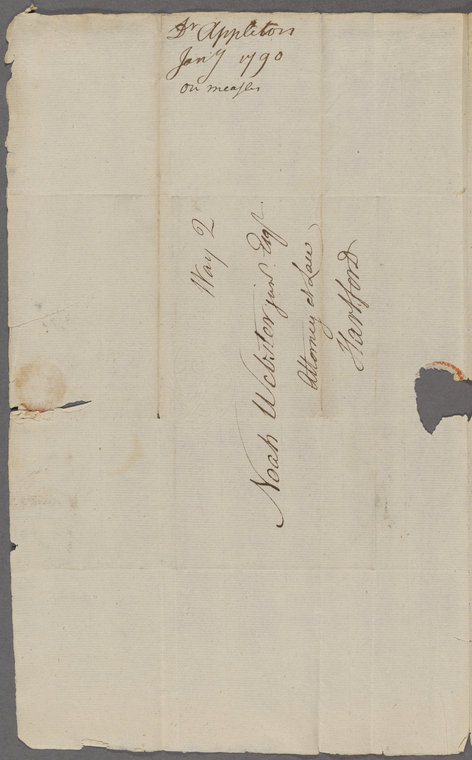 Dr Appleton
Jany 1790
on measles
Way 2
Noah Webster junr. Esqr.
Attorney at Law
Hartford